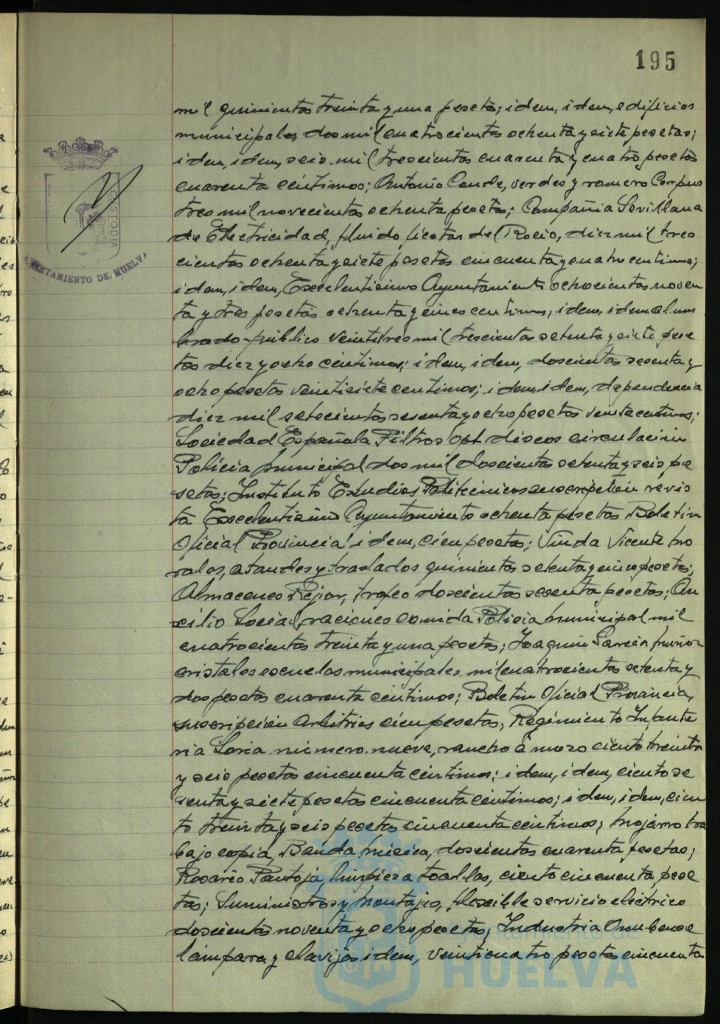 195
mil quinientas treinta y una peseta; idem, idem, edificios
municipales, dos mil cuatrocientas ochenta y siete pesetas;
idem, idem, seis mil trescientas cuarenta y cuatro pesetas
cuarenta céntimos; Antonio Conde, verdes y romero Corpus
tres mil novecientas ochenta pesetas; Compañia Sevillana
de Electricidad, fluido, fiestas del Rocio, diez mil tres
cientas ochenta y siete pesetas cincuenta y cuatro centimos;
idem, idem, Excelentisimo Ayuntamiento ochocientas noven
ta y tres pesetas ochenta y cinco centimos; idem, idem alum
brado público veintitres mil trescientas setenta y siete pese
tas diez y ocho céntimos; idem, idem, doscientas sesenta y
ocho pesetas veintisiete centimos; idem, idem, dependencia
diez mil setecientas sesenta y ocho pesetas veinte centimos;
Sociedad Española Filtros discos circulación
Policia municipal dos mil doscientas setenta y seis pe
setas; Instituto Estudios Politécnicos suscripción revis
ta Excelentisimo Ayuntamiento ochenta pesetas Boletin
Oficial Provincia idem, cien pesetas; Viuda Vicente Mo
rales, ataudes y traslados quinientas setenta y cinco pesetas;
Almacenes Rejar, trofeo doscientas sesenta pesetas; Au
xilio Social, raciones comida Policia municipal mil
cuatrocientas treinta y una pesetas; Joaquin Garcia Muñoz
cristales escuelas municipales mil cuatrocientas setenta y
dos pesetas cuarenta céntimos; Boletin Oficial Provincia,
suscripción Arbitrios cien pesetas; Regimiento Infante
ria Soria número nueve, rancho mozo ciento treinta
y seis pesetas cincuenta céntimos; idem, idem, ciento se
senta y siete pesetas cincuenta céntimos; idem, idem, cien
to treinta y seis pesetas cincuenta céntimos; Mojarro tra
bajo copia, Banda música, doscientas cuarenta pesetas;
Rosario Pantoja limpieza toallas, ciento cincuenta pese
tas; Suministros y Montajes, flexible servicio eléctrico
doscientas noventa y ocho pesetas; Industria Onubense
lámpara y clavijas idem, veinticuatro pesetas cincuenta
AYUNTAMIENTO DE HUELVA
HUELVA